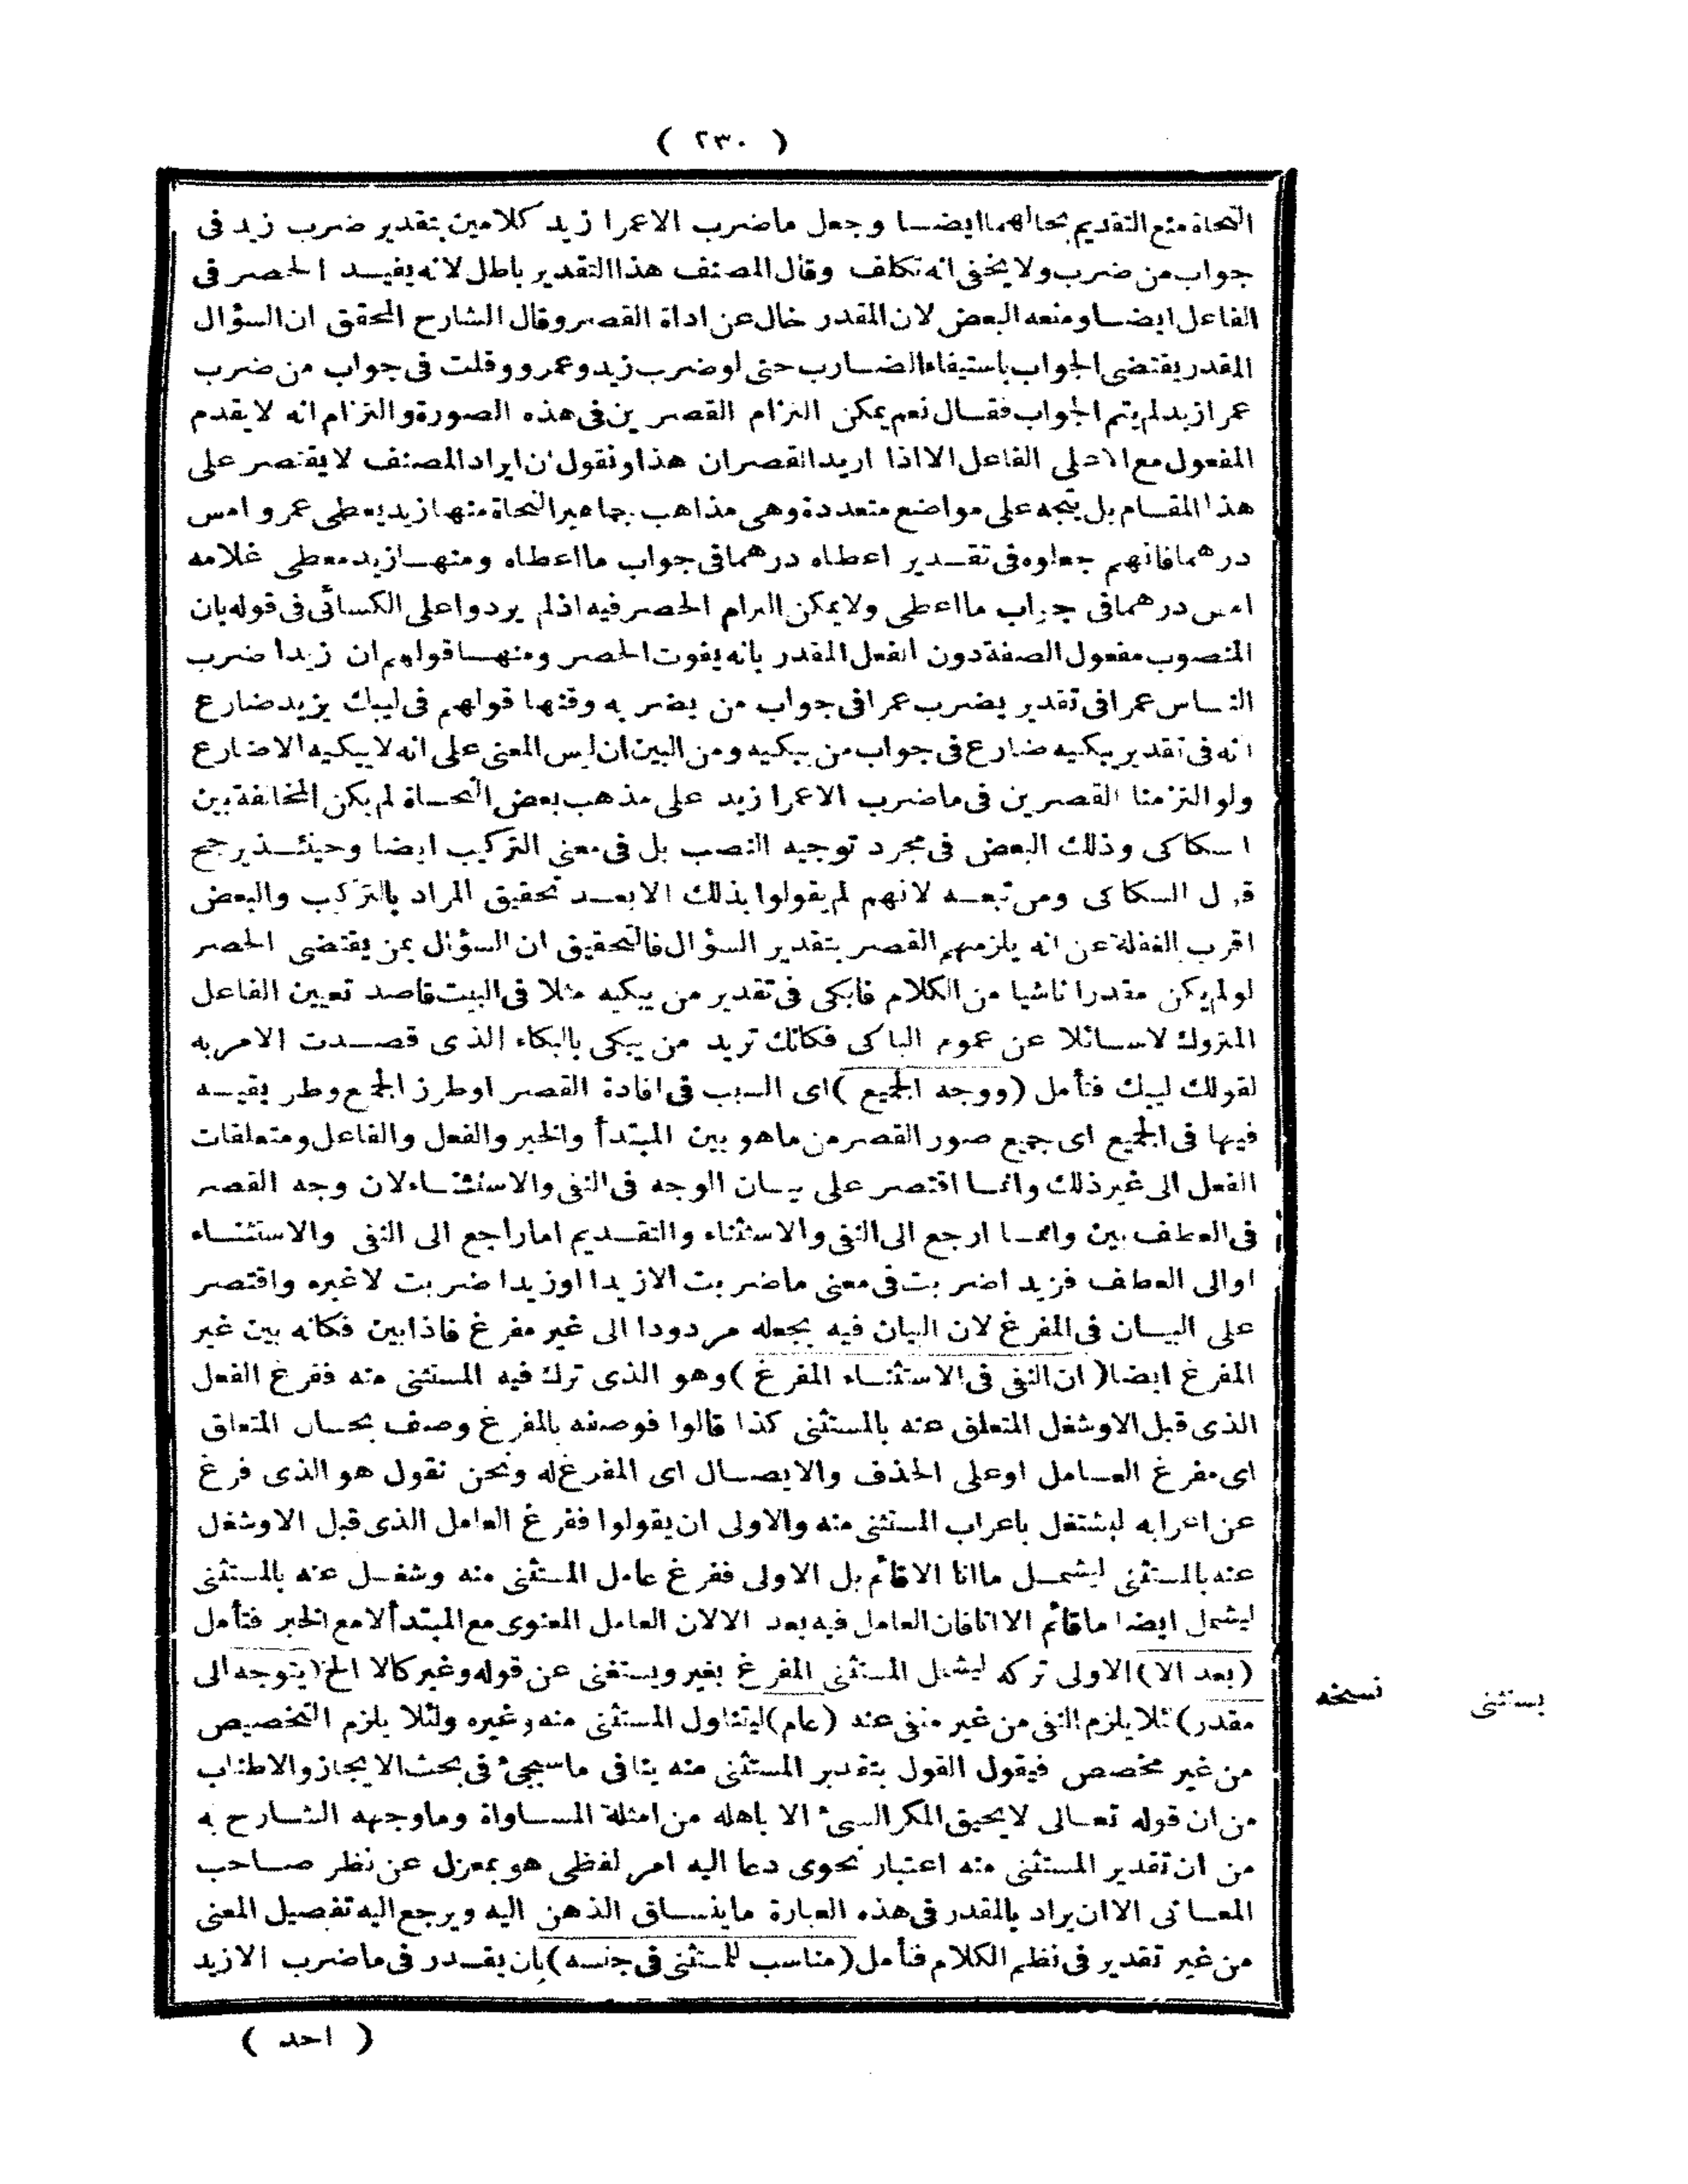 ( ٢٣٠ )
النحاة منع التقديم بحالهما ايضا وجعل ماضرب الاعمرا زيد كلامين بتقدير ضرب زيد فى
جواب من ضرب ولا يخفى انه تكلف وقال المصنف هذا التقدير باطل لانه يفيد الحصر فى
الفاعل ايضا ومنعه البعض لان المقدر خال عن اداة القصر وقال الشارح المحقق ان السؤال
المقدر يقتضى الجواب باستيفاء الضارب حتى لو ضرب زيد وعمرو وقلت فى جواب من ضرب
عمرا زيد لم يتم الجواب فقال نعم يمكن التزام القصرين فى هذه الصورة والتزام انه لا يقدم
المفعول مع الا على الفاعل الا اذا اريد القصران هذا ونقول ان ايراد المصنف لا يقتصر على
هذا المقام بل يتجه على مواضع متعددة وهى مذاهب جماهير النحاة منها زيد يعطى عمرو امس
درهما فانهم جعلوه فى تقدير اعطاه درهما فى جواب ما اعطاه ومنها زيد معطى غلامه
امس درهما فى جواب ما اعطى ولا يمكن الزام الحصر فيه اذ لم يردوا على الكسائى فى قوله بان
المنصوب مفعول الصفة دون الفعل المقدر بانه يفوت الحصر ومنها قولهم ان زيدا ضرب
الناس عمرا فى تقدير يضرب عمرا فى جواب من يضربه وقتها قولهم فى ليبك يزيد ضارع
انه فى تقدير يبكيه ضارع فى جواب من يبكيه ومن البين ان ليس المعنى على انه لا يبكيه الا ضارع
ولو التزمنا القصرين فى ماضرب الاعمرا زيد على مذهب بعض النحاة لم يكن المخالفة بين
السكاكى وذلك البعض فى مجرد توجيه النصب بل فى معنى التركيب ايضا وحينئذ يرجح
قول السكاكى ومن تبعه لانهم لم يقولوا بذلك الا بعد تحقيق المراد بالتركيب والبعض
اقرب الغفلة عن انه يلزمهم القصر بتقدير السؤال فالتحقيق ان السؤال بمن يقتضى الحصر
لو لم يكن مقدرا ناشيا من الكلام فابكى فى تقدير من يبكيه مثلا فى البيت قاصد تعيين الفاعل
المتروك لا سائلا عن عموم الباكى فكانك تريد من يبكى بالبكاء الذى قصدت الامر به
لقولك ليبك فتأمل (ووجه الجميع) اى السبب فى افادة القصر او طرز الجمع وطر يقيسه
فيها فى الجميع اى جميع صور القصر من ما هو بين المبتدأ والخبر والفعل والفاعل ومتعلقات
الفعل الى غير ذلك وانما اقتصر على بيان الوجه فى النفى والاستثناء لان وجه القصر
فى العطف بين وانما ارجع الى النفى والاستثناء والتقديم اما راجع الى النفى والاستثناء
او الى العطف فزيدا ضربت فى معنى ماضربت الا زيدا او زيدا ضربت لا غيره واقتصر
على البيان فى المفرغ لان البيان فيه يجعله مردودا الى غير مفرغ فاذا بين فكانه بين غير
المفرغ ايضا (ان النفى فى الاستثناء المفرغ) وهو الذى ترك فيه المستثنى منه ففرغ الفعل
الذى قبل الا وشغل المتعلق عنه بالمستثنى كذا قالوا فوصفه بالمفرغ وصف بحال المتعلق
اى مفرغ العامل او على الحذف والايصال اى المفرغ له ونحن نقول هو الذى فرغ
عن اعرابه ليشتغل باعراب المستثنى منه والاولى ان يقولوا ففرغ العامل الذى قبل الا وشغل
عنه بالمستثنى ليشمل ما انا الا قائم بل الاولى ففرغ عامل المستثنى منه وشغل عنه بالمستثنى
ليشمل ايضا ما قائم الا انا فان العامل فيه بعد الا لان العامل المعنوى مع المبتدأ لا مع الخبر فتأمل
(بعد الا) الاولى تركه ليشمل المستثنى المفرغ بغير ويستغنى عن قوله وغير كالا الخ (يتوجه الى
مقدر) لئلا يلزم النفى من غير منفى عنه (عام) ليتناول المستثنى منه وغيره ولئلا يلزم التخصيص
من غير مخصص فيقول القول بتقدير المستثنى منه ينافى ما سيجئ فى بحث الايجاز والاطناب
من ان قوله تعالى لا يحيق المكر السيئ الا باهله من امثلة المساواة وما وجهه الشارح به
من ان تقدير المستثنى منه اعتبار نحوى دعا اليه امر لفظى هو بمعزل عن نظر صاحب
المعانى الا ان يراد بالمقدر فى هذه العبارة ما ينساق الذهن اليه ويرجع اليه تفصيل المعنى
من غير تقدير فى نظم الكلام فتأمل (مناسب للمستثنى فى جنسه) بان يقدر فى ماضرب الا زيد
يستثنى نسخه
( احد )